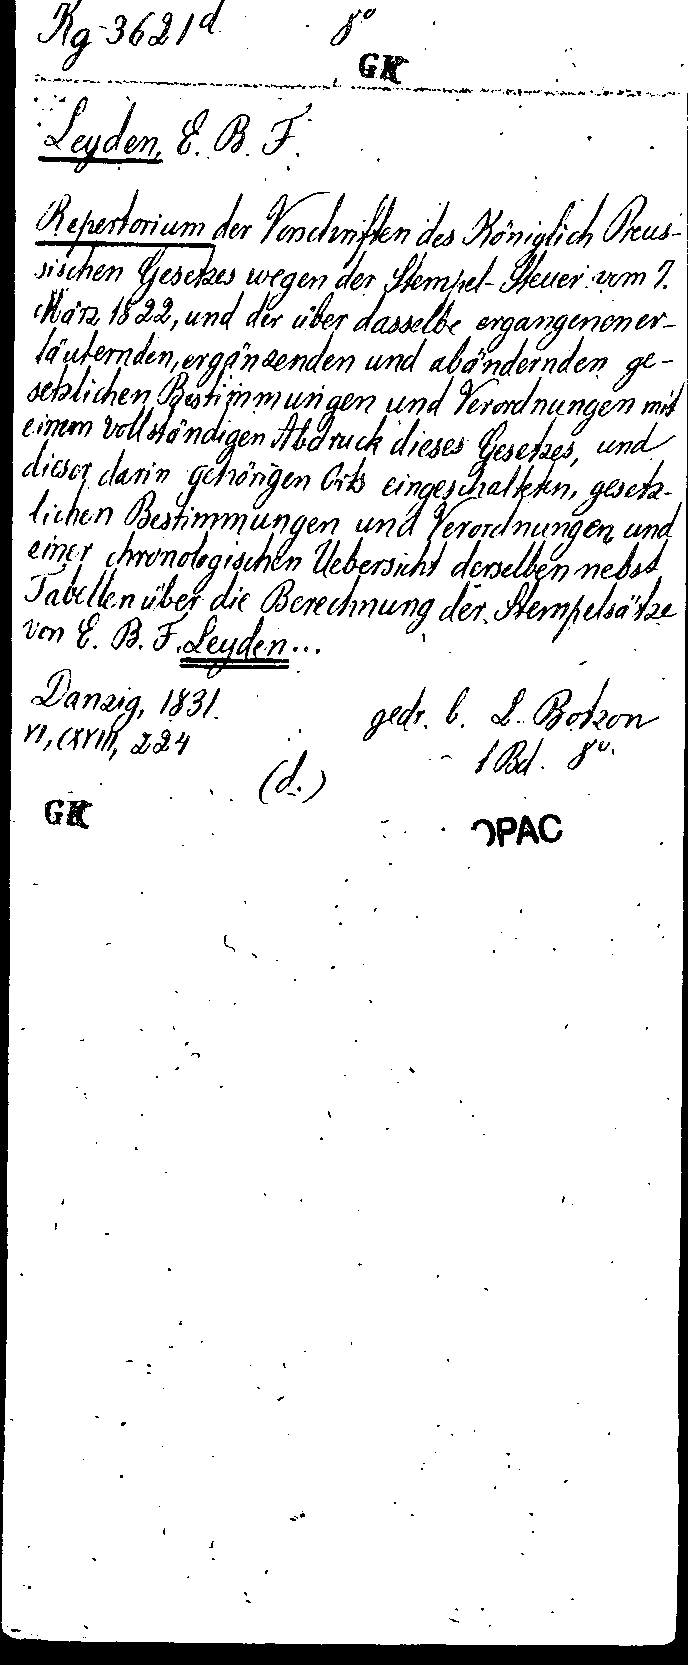 Kg-3621d 8°
GK
Leyden, E. B. F.
Repertorium der Vorschriften des Königlich Preus-
sischen Gesetzes wegen der Stempel-Steuer vom 7.
März 1822, und der über dasselbe ergangenen er-
läuternden, ergänzenden und abändernden ge-
setzlichen Bestimmungen und Verordnungen mit
einem vollständigen Abdruck dieses Gesetzes, und
dieser darin gehörigen Orts eingeschalteten, gesetz-
lichen Bestimmungen und Verordnungen, und
einer chronologischen Uebersicht derselben nebst
Tabellen über die Berechnung der Stempelsätze
von E. B. F. Leyden...
Danzig, 1831. gedr. b. L. Botzon
VI, CXVIII, 224 1 Bd. 8°.
(d.)
GK OPAC